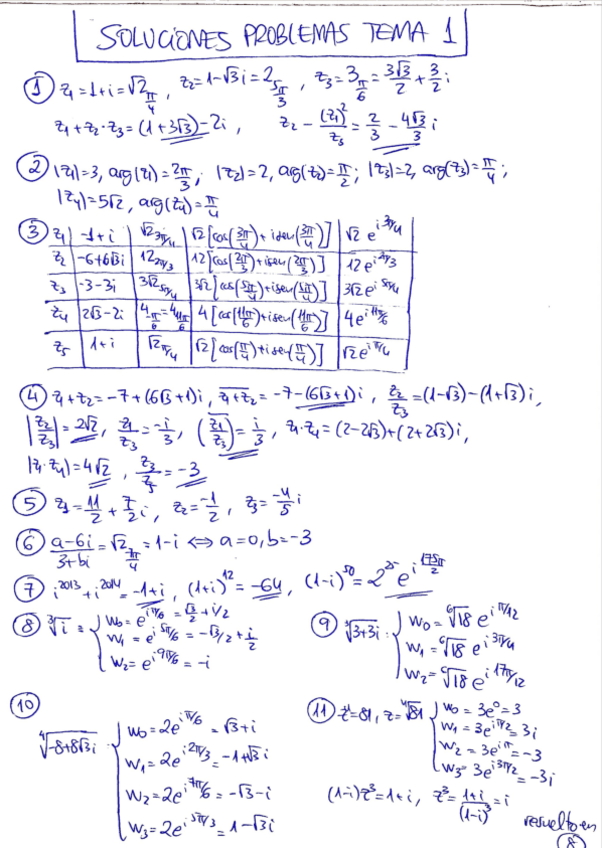 SOLUCIONES PROBLEMAS TEMA 1
① z₁=1+i=√2_{π/4}, z₂=1-√3i=2_{5π/3}, z₃=3_{π/6}=3√3/2+3/2 i
z₁+z₂·z₃=(1+3√3)-2i, z₂-(z₁)²/z₃=2/3-4√3/3 i
② |z₁|=3, arg(z₁)=2π/3; |z₂|=2, arg(z₂)=π/2; |z₃|=2, arg(z₃)=π/4;
|z₄|=5√2, arg(z₄)=π/4
③ z₁ | -1+i | √2_{3π/4} | √2[cos(3π/4)+isen(3π/4)] | √2 e^{i3π/4}
z₂ | -6+6√3i | 12_{2π/3} | 12[cos(2π/3)+isen(2π/3)] | 12e^{i2π/3}
z₃ | -3-3i | 3√2_{5π/4} | 3√2[cos(5π/4)+isen(5π/4)] | 3√2e^{i5π/4}
z₄ | 2√3-2i | 4_{-π/6}=4_{11π/6} | 4[cos(11π/6)+isen(11π/6)] | 4e^{i11π/6}
z₅ | 1+i | √2_{π/4} | √2[cos(π/4)+isen(π/4)] | √2e^{iπ/4}
④ z₁+z₂=-7+(6√3+1)i, \overline{z₁+z₂}=-7-(6√3+1)i, z₂/z₃=(1-√3)-(1+√3)i,
|z₂/z₃|=2√2, z₁/z₃=-i/3, \overline{(z₁/z₃)}=i/3, z₁·z₄=(2-2√3)+(2+2√3)i,
|z₁·z₄|=4√2, z₃/z₅=-3
⑤ z₁=11/2+7/2 i, z₂=-1/2, z₃=-4/5 i
⑥ (a-6i)/(3+bi)=√2_{7π/4}=1-i ⟺ a=0, b=-3
⑦ i²⁰¹³+i²⁰¹⁴=-1+i, (1+i)¹²=-64, (1-i)⁵⁰=2²⁵e^{i175π/2}
⑧ ∛i = { w₀=e^{iπ/6}=√3/2+i/2
w₁=e^{i5π/6}=-√3/2+i/2
w₂=e^{i9π/6}=-i
⑨ ∛(3+3i) { w₀=⁶√18 e^{iπ/12}
w₁=⁶√18 e^{i3π/4}
w₂=⁶√18 e^{i17π/12}
⑩ ⁴√(-8+8√3i) { w₀=2e^{iπ/6}=√3+i
w₁=2e^{i2π/3}=-1+√3i
w₂=2e^{i7π/6}=-√3-i
w₃=2e^{i5π/3}=1-√3i
⑪ z⁴=81, z=⁴√81 { w₀=3e⁰=3
w₁=3e^{iπ/2}=3i
w₂=3e^{iπ}=-3
w₃=3e^{i3π/2}=-3i
(1-i)z³=1+i, z³=(1+i)/(1-i)³=i
resuelto en
⑧